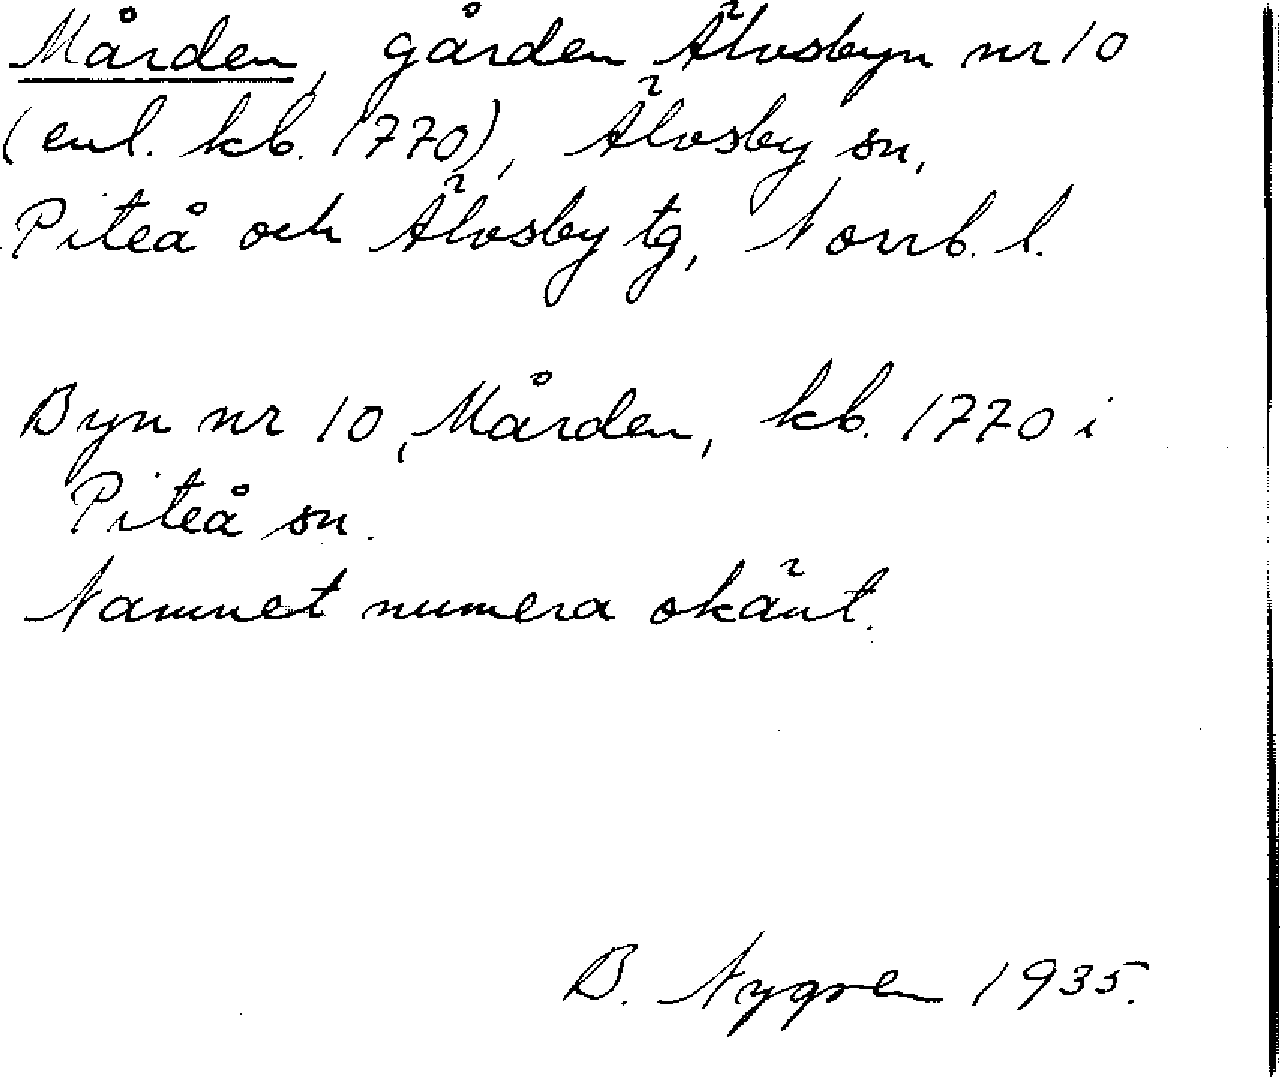 Mården, gården Älvsbyn nr 10
(enl. kb. 1770), Älvsby sn,
Piteå och Älvsby tg, Norrb. l.
Byn nr 10, Mården, kb. 1770 i
Piteå sn.
Namnet numera okänt.
B. Nygren 1935.